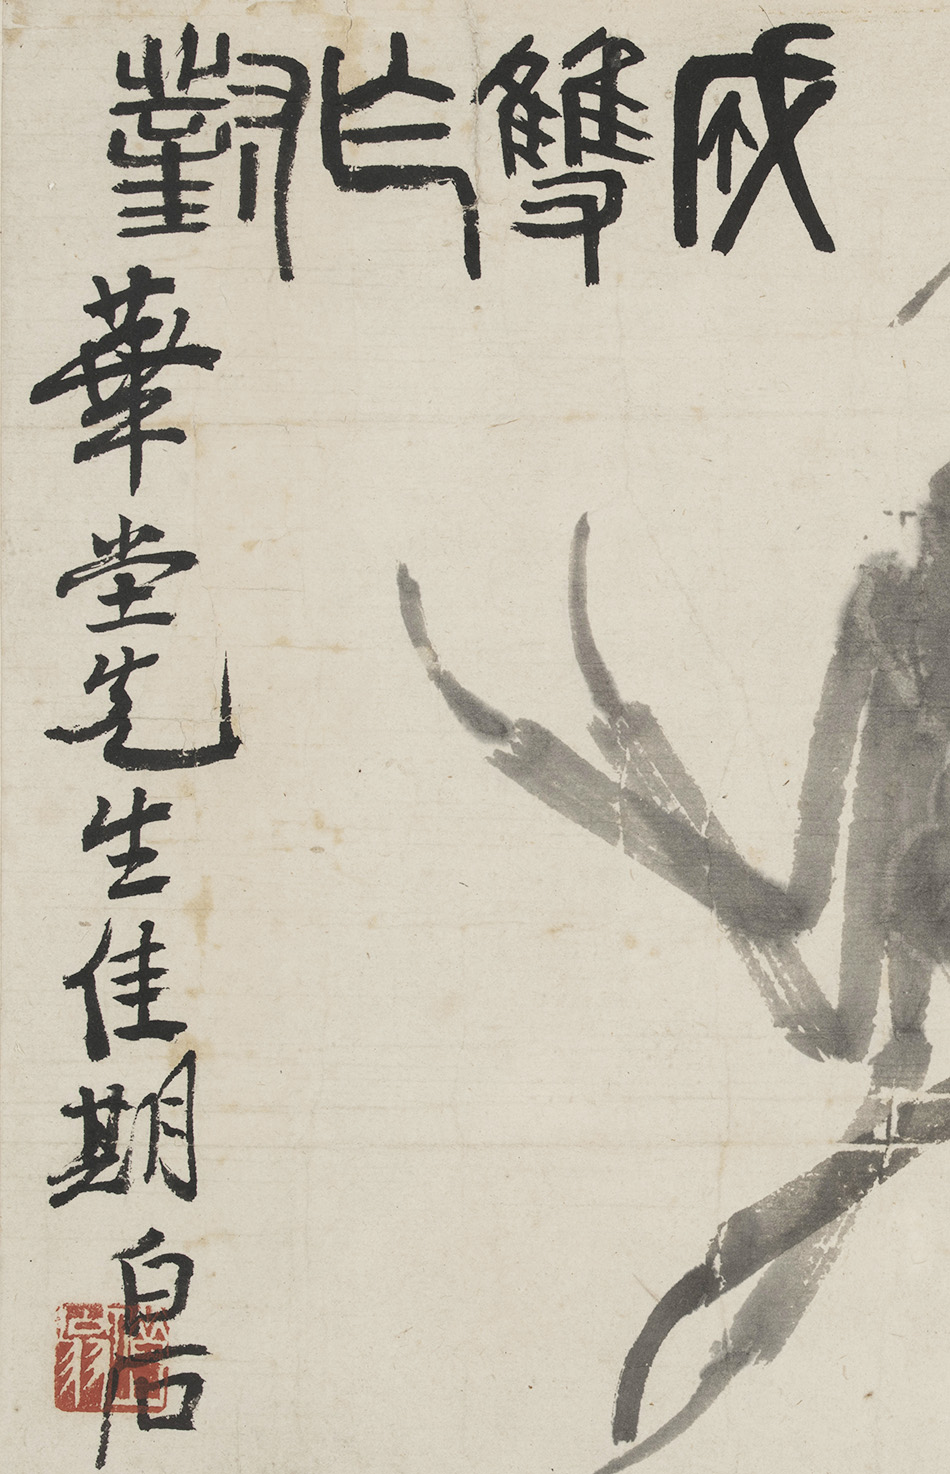 成雙作對
華堂先生佳期
白石